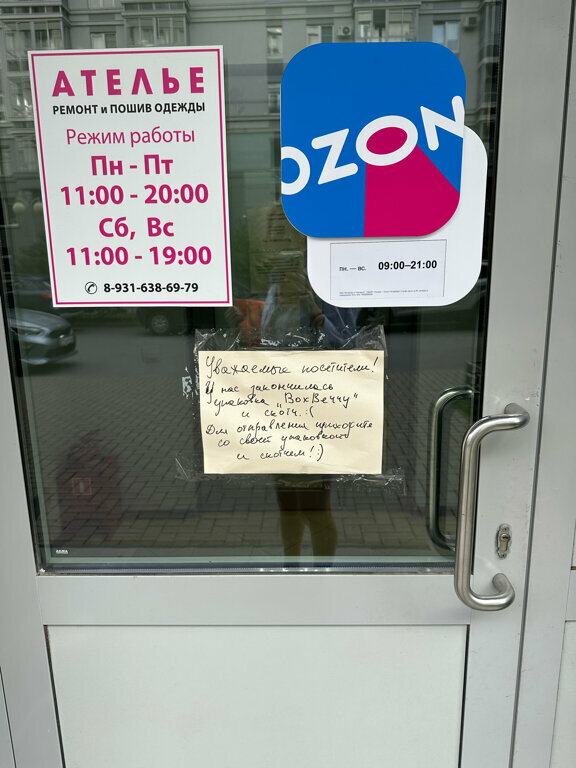 АТЕЛЬЕ
РЕМОНТ и ПОШИВ ОДЕЖДЫ
Режим работы
Пн - Пт
11:00 - 20:00
Сб, Вс
11:00 - 19:00
8-931-638-69-79
OZON
пн. — вс. 09:00–21:00
Уважаемые посетители!
У нас закончилась
упаковка "BoxBerry"
и скотч. :(
Для отправления приходите
со своей упаковкой
и скотчем! :)